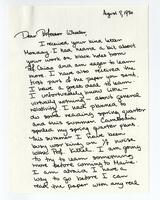 August 9, 1980
Dear Professor Wheeler,
I received your nice letter
Monday. I had heard a bit about
your work on black hole from
and am eager to learn
more. I have also received the
first part of the paper you send.
I have a great deal to learn.
I unfortunately know little —
virtually nothing — about general
relativity. I had planned to
do some reading spring quarter
and this summer.
spoiled my spring quarter plans.
This summer I have been
busy working on
with Prof.
to try to learn something
more before coming to
I am afraid I have a
way to go before I can
read the paper with any real